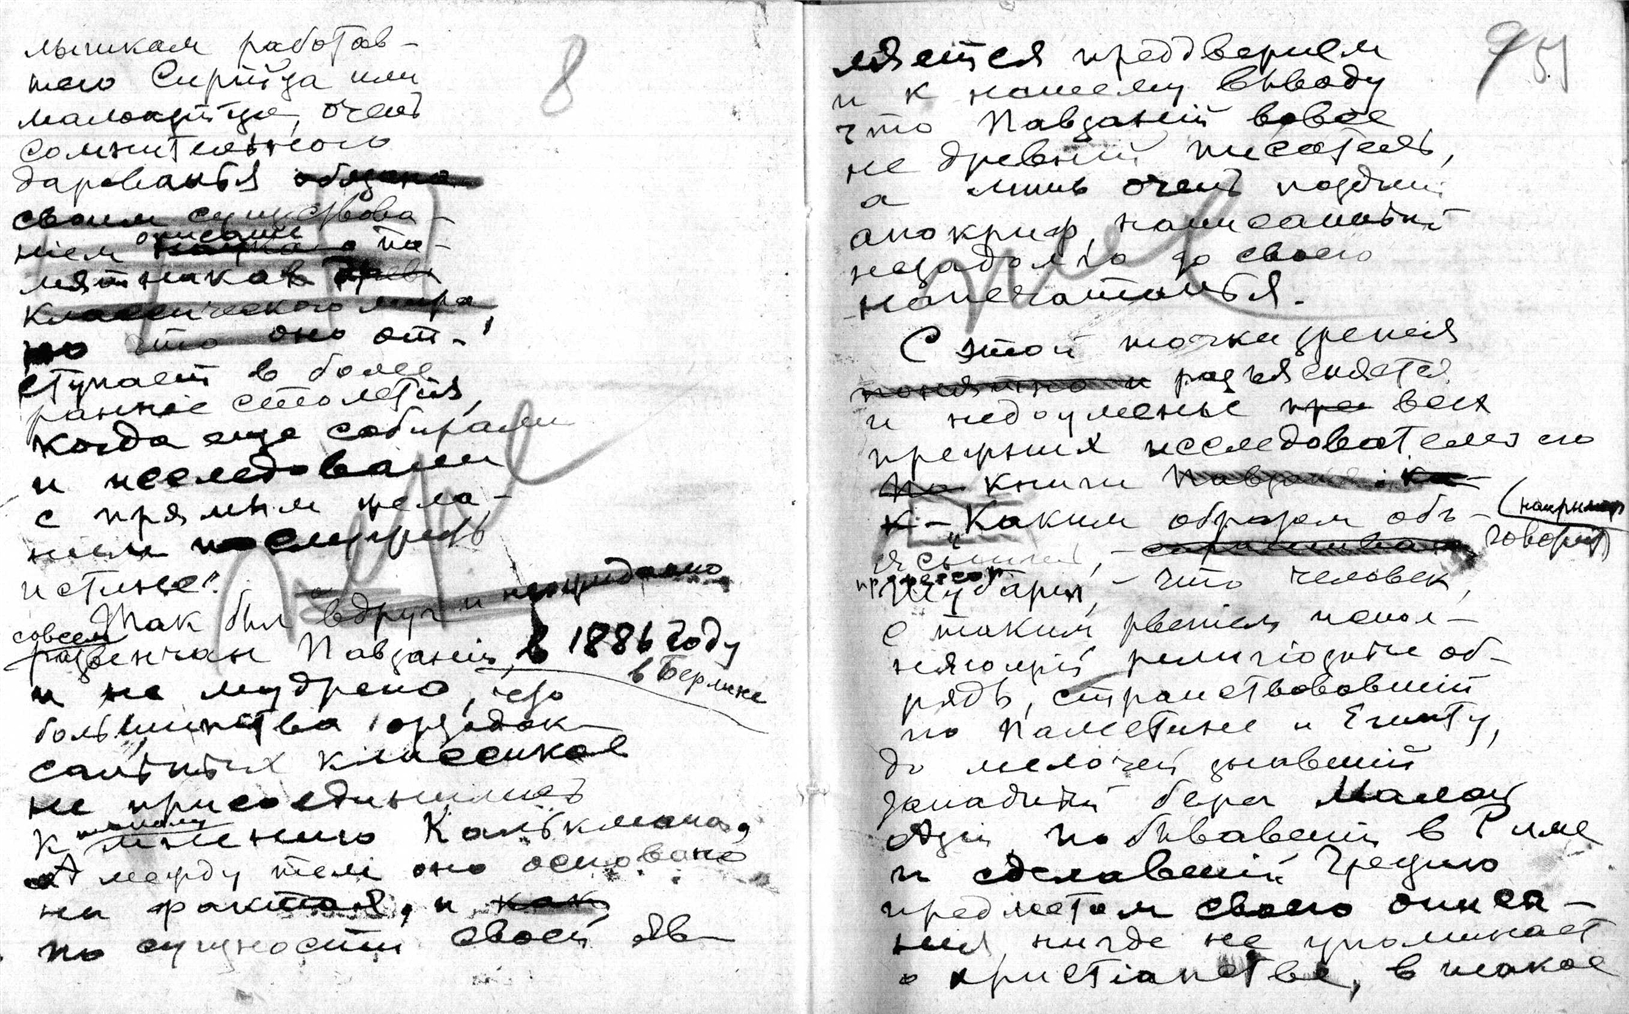 8
лышкам работав-
шего Сирийца или
малоазийца, очень
сомнительного
дарованья обязана
своим существова-
нием описание па-
мятников древ
классического мира
но что оно от-
ступает в более
ранние столетия,
когда еще собирали
и исследовали
с прямым жела-
нием послужить
истине?
Так был вдруг и неожиданно
совсем
развенчан Павзаний в 1886 году
в Берлине
и не мудрено, что
большинство ортодок-
сальных классиков
не присоединились
к такому мнению Калькмана,
А между тем оно основано
на фактах, и как
по сущности своей яв-
9 51
ляется преддверием
и к нашему выводу
что Павзаний вовсе
не древний писатель,
а лишь очень поздний
апокриф, написанный
незадолго до своего
напечатанья.
С этой точки зрения
понятно и разъясняется
и недоуменье всех
прежних исследователей его
книги
Каким образом объ-
(например
говорит)
яснить, – спрашивал
профессор
Шубарт, – что человек,
с таким рвением испол-
няющий религиозные об-
ряды, странствовавший
по Палестине и Египту,
до мелочей знавший
западный берег Малой
Азии, побывавший в Риме
и сделавший Грецию
предметом своего описа-
ния, нигде не упоминает
о христианстве, в такое